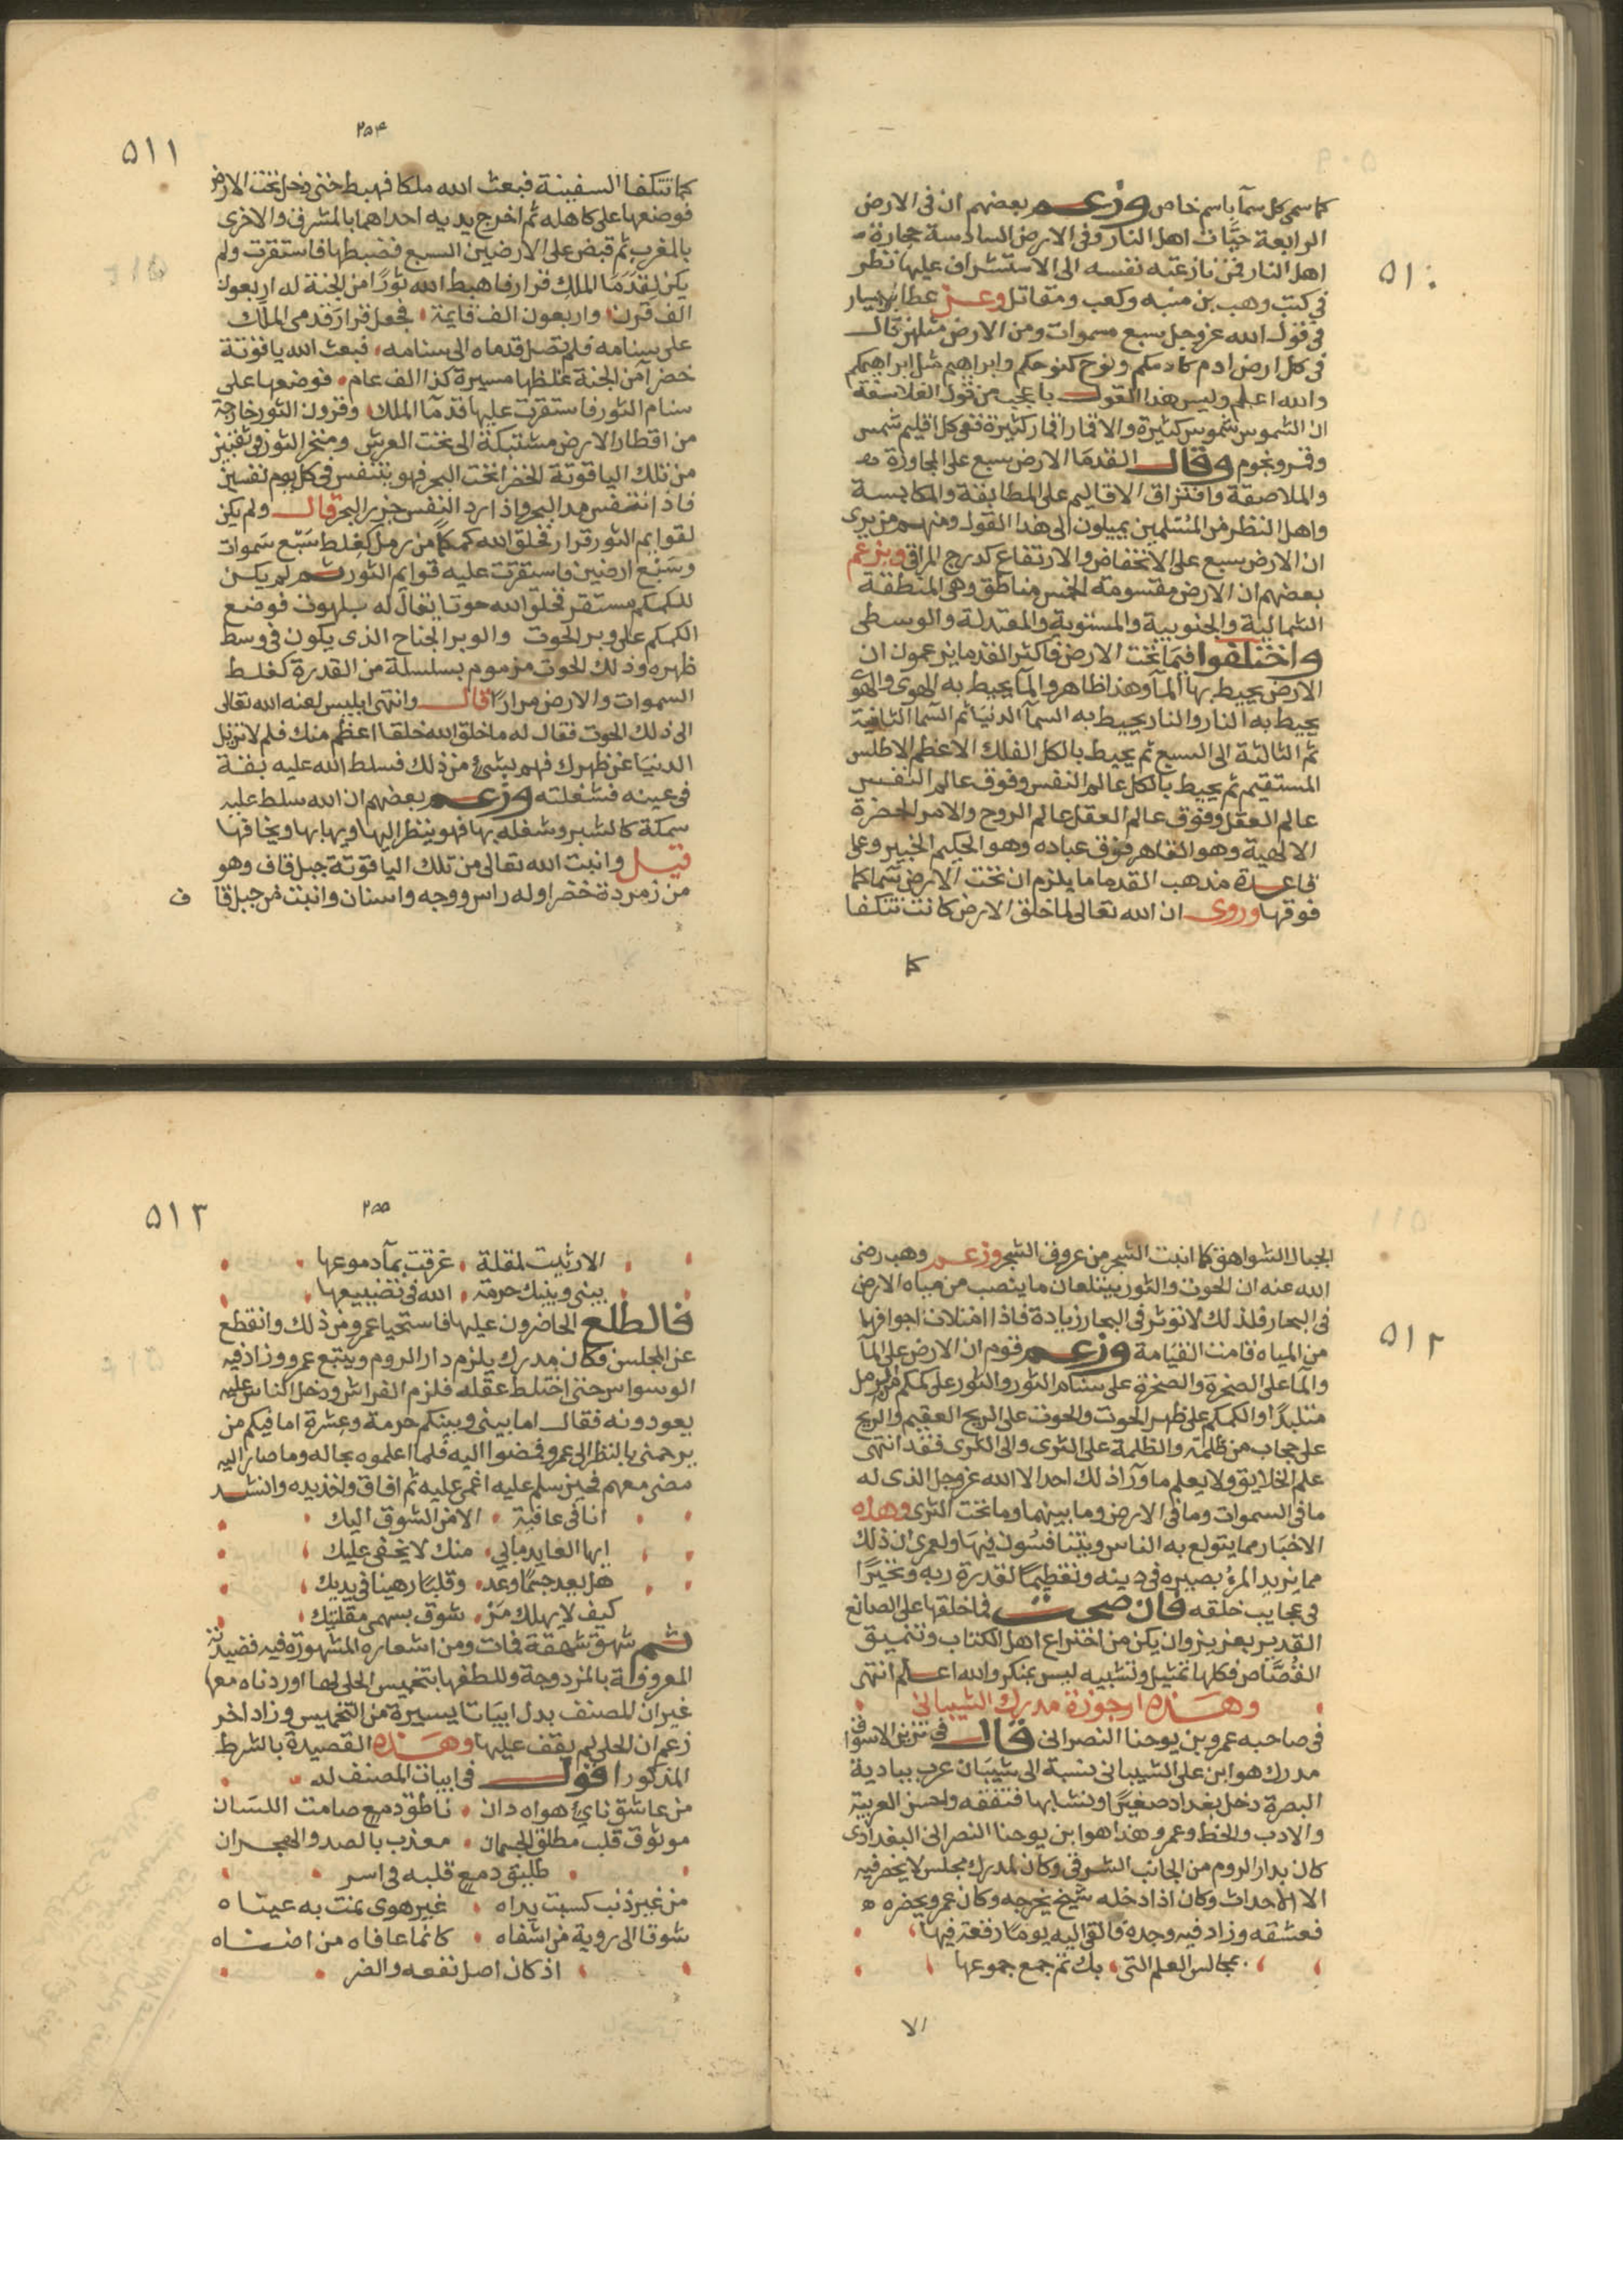 ٥١٠
كما سمى كل سمآ باسم خاص وزعم بعضهم ان فى الارض
الرابعة حيَّات اهل النار وفى الارض السادسة حجارة
اهل النار فمن نازعته نفسه الى الاستشراف عليها نظر
فى كتب وهب بن منبه وكعب ومقاتل وعن عطا بن يسار
فى قول الله عز وجل سبع سموات ومن الارض مثلهن قال
فى كل ارض ادم كادمكم ونوح كنوحكم وابراهيم مثل ابراهيمكم
والله اعلم وليس هذا القول باعجب من قول الفلاسفة
ان الشموس شموس كثيرة والاقمار اقمار كثيرة ففى كل اقليم شمس
وقمر ونجوم وقال القدما الارض سبع على المجاورة
والملاصقة وافتراق الاقاليم على المطابقة والمكابسة
واهل النظر من المسلمين يميلون الى هذا القول ومنهم من يرى
ان الارض سبع على الانخفاض والارتفاع كدرج المراقى ويزعم
بعضهم ان الارض مقسومة لخمس مناطق وهى المنطقة
الشمالية والجنوبية والمستوية والمعتدلة والوسطى
واختلفوا فيما تحت الارض فاكثر القدما يزعمون ان
الارض يحيط بها المآ وهذا ظاهر والمآ يحيط به الهوى والهوى
يحيط به النار والنار يحيط به السمآ الدنيا ثم السمآ الثانية
ثم الثالثة الى السبع ثم يحيط بالكل الفلك الاعظم الاطلس
المستقيم ثم يحيط بالكل عالم النفس وفوق عالم النفس
عالم العقل وفوق عالم العقل عالم الروح والامر الحضرة
الالهية وهو القاهر فوق عباده وهو الحكيم الخبير وعلى
قاعدة مذهب القدما ما يلزم ان تحت الارض سما كما
فوقها وروى ان الله تعالى لما خلق الارض كانت تتكفا
كما
٢٥٤
٥١١
كما تتكفا السفينة فبعث الله ملكا فهبط حتى دخل تحت الارض
فوضعها على كاهله ثم اخرج يديه احداهما بالمشرق والاخرى
بالمغرب ثم قبض على الارضين السبع فضبطها فاستقرت ولم
يكن لقدمَا الملك قرار فاهبط الله ثورًا من الجنة له اربعون
الف قرن واربعون الف قايمة فجعل قرار قدمى الملك
على سنامه فلم تصل قدماه الى سنامه فبعث الله ياقوتة
خضرآ من الجنة غلظها مسيرة كذا الف عام فوضعها على
سنام الثور فاستقرت عليها قدمآ الملك وقرون الثور خارجة
من اقطار الارض مشتبكة الى تحت العرش ومنخر الثور فى ثقبين
من تلك الياقوتة الخضرا تحت البحر فهو يتنفس فى كل يوم نفسين
فاذا تنفس مد البحر واذا رد النفس جزر البحر قال ولم يكن
لقوايم الثور قرار فخلق الله كمكمًا من رمل كغلط سَبع سَموات
وسَبع ارضين فاستقرت عليه قوايم الثور ثم لم يكن
للكمكم مستقر فخلق الله حوتا يقال له بلهوت فوضع
الكمكم على وبر الحوت والوبر الجناح الذى يكون فى وسط
ظهره وذلك الحوت مزموم بسلسلة من القدرة كغلط
السموات والارض مرارًا قال وانتهى ابليس لعنه الله تعالى
الى ذلك الحوت فقال له ما خلق الله خلقا اعظم منك فلم لا تزيل
الدنيا عن ظهرك فهم بشئ من ذلك فسلط الله عليه بقة
فى عينه فشغلته وزعم بعضهم ان الله سلط عليه
سمكة كالشبر وشغله بها فهو ينظر اليها ويهابها ويخافها
قيل وانبت الله تعالى من تلك الياقوتة جبل قاف وهو
من زمردة خضرا وله راس ووجه واسنان وانبت من جبل قاف
٥١٢
الجبال الشواهق كما انبت الشجر من عروق الشجر وزعم وهب رضى
الله عنه ان الحوت والثور يبتلعان ما ينصب من مياه الارض
فى البحار فلذلك لا توثر فى البحار زيادة فاذا امتلات اجوافها
من المياه قامت القيامة وزعم قوم ان الارض على المآ
والما على الصخرة والصخرة على سنام الثور والثور على كمكم من الرمل
متلبدًا والكمكم على ظهر الحوت والحوت على الريح العقيم والريح
على حجاب من ظلمة والظلمة على الثرى والى الثرى فقد انتهى
علم الخلايق ولا يعلم ما ورآ ذلك احد الا الله عز وجل الذى له
ما فى السموات وما فى الارض وما بينهما وما تحت الثرى وهذه
الاخبار مما يتولع به الناس ويتنافسُون فيها ولعمرى ان ذلك
مما يزيد المرؤ بصيره فى دينه وتعظيمًا لقدرة ربه وتحيرًا
فى عجايب خلقه فان صحت فما خلقها على الصانع
القدير بعزيز وان يكن من اختراع اهل الكتاب وتنميق
القُصَّاص فكلها تمثيل وتشبيه ليس بمنكر والله اعلم انتهى
وهذه ارجوزة مدرك الشيبانى
فى صاحبه عمرو بن يوحنا النصرانى قال فى تزيين الاسواق
مدرك هو ابن على الشيبانى نسبة الى شيبَان عرب ببادية
البصرة دخل بغداد صغيرًا ونشا بها فتفقه واحسن العربية
والادب والخط وعمرو هذا هو ابن يوحنا النصرانى البغدادى
كان بدار الروم من الجانب الشرقى وكان لمدرك مجلس لا يحضر فيه
الا الاحداث وكان اذا دخله شيخ يخرجه وكان عمرو يحضره
فعشقه وزاد فيه وجده فالقى اليه يومًا رقعة فيها
بمجالس العلم التى بك تم جمع جموعها
الا
٢٥٥
٥١٣
الا رثيت لمقلة غرقت بمآ دموعها
بينى وبينك حرمة الله فى تضييعها
فاطلع الحاضرون عليها فاستحيا عمرو من ذلك وانقطع
عن المجلس فكان مدرك يلزم دار الروم ويتبع عمرو وزاد فيه
الوسواس حتى اختلط عقله فلزم الفراش ودخل الناس عليه
يعودونه فقال اما بينى وبينكم حرمة وعِشرة اما فيكم من
يرحمنى بالنظر الى عمرو فمضوا اليه فلما اعلموه بحاله وما صار اليه
مضى معهم فحين سلم عليه اغمى عليه ثم افاق واخذ يده وانشد
انا فى عافية الا من الشوق اليك
ايها العايد ما بى منك لا يخفى عليك
هل بعد جسمًا وعد وقلبًا رهينا فى يديك
كيف لا يهلك من شوق بسهمى مقلتيك
ثم شهق شهقة فمات ومن اشعاره المشهورة فيه قصيدته
المعروفة بالمزدوجة وللطفها بتخميس الحلى لها اوردناه معها
غير ان المصنف بدل ابيَاتا يسيرة من التخميس وزاد اخر
زعم ان الحلى لم يقف عليها وهذه القصيدة بالشرط
المذكور اقول فى ابيات المصنف له
من عاشق ناىٍ هواه دان ناطق دمع صامت اللسَان
موثوق قلب مطلق الجسمان معذب بالصد والهجران
طليق دمع قلبه فى اسر
من غير ذنب كسبت يداه غير هوى نمت به عيناه
شوقا الى روية من اشقاه كانما عافاه من اضناه
اذ كان اصل نفعه والضر